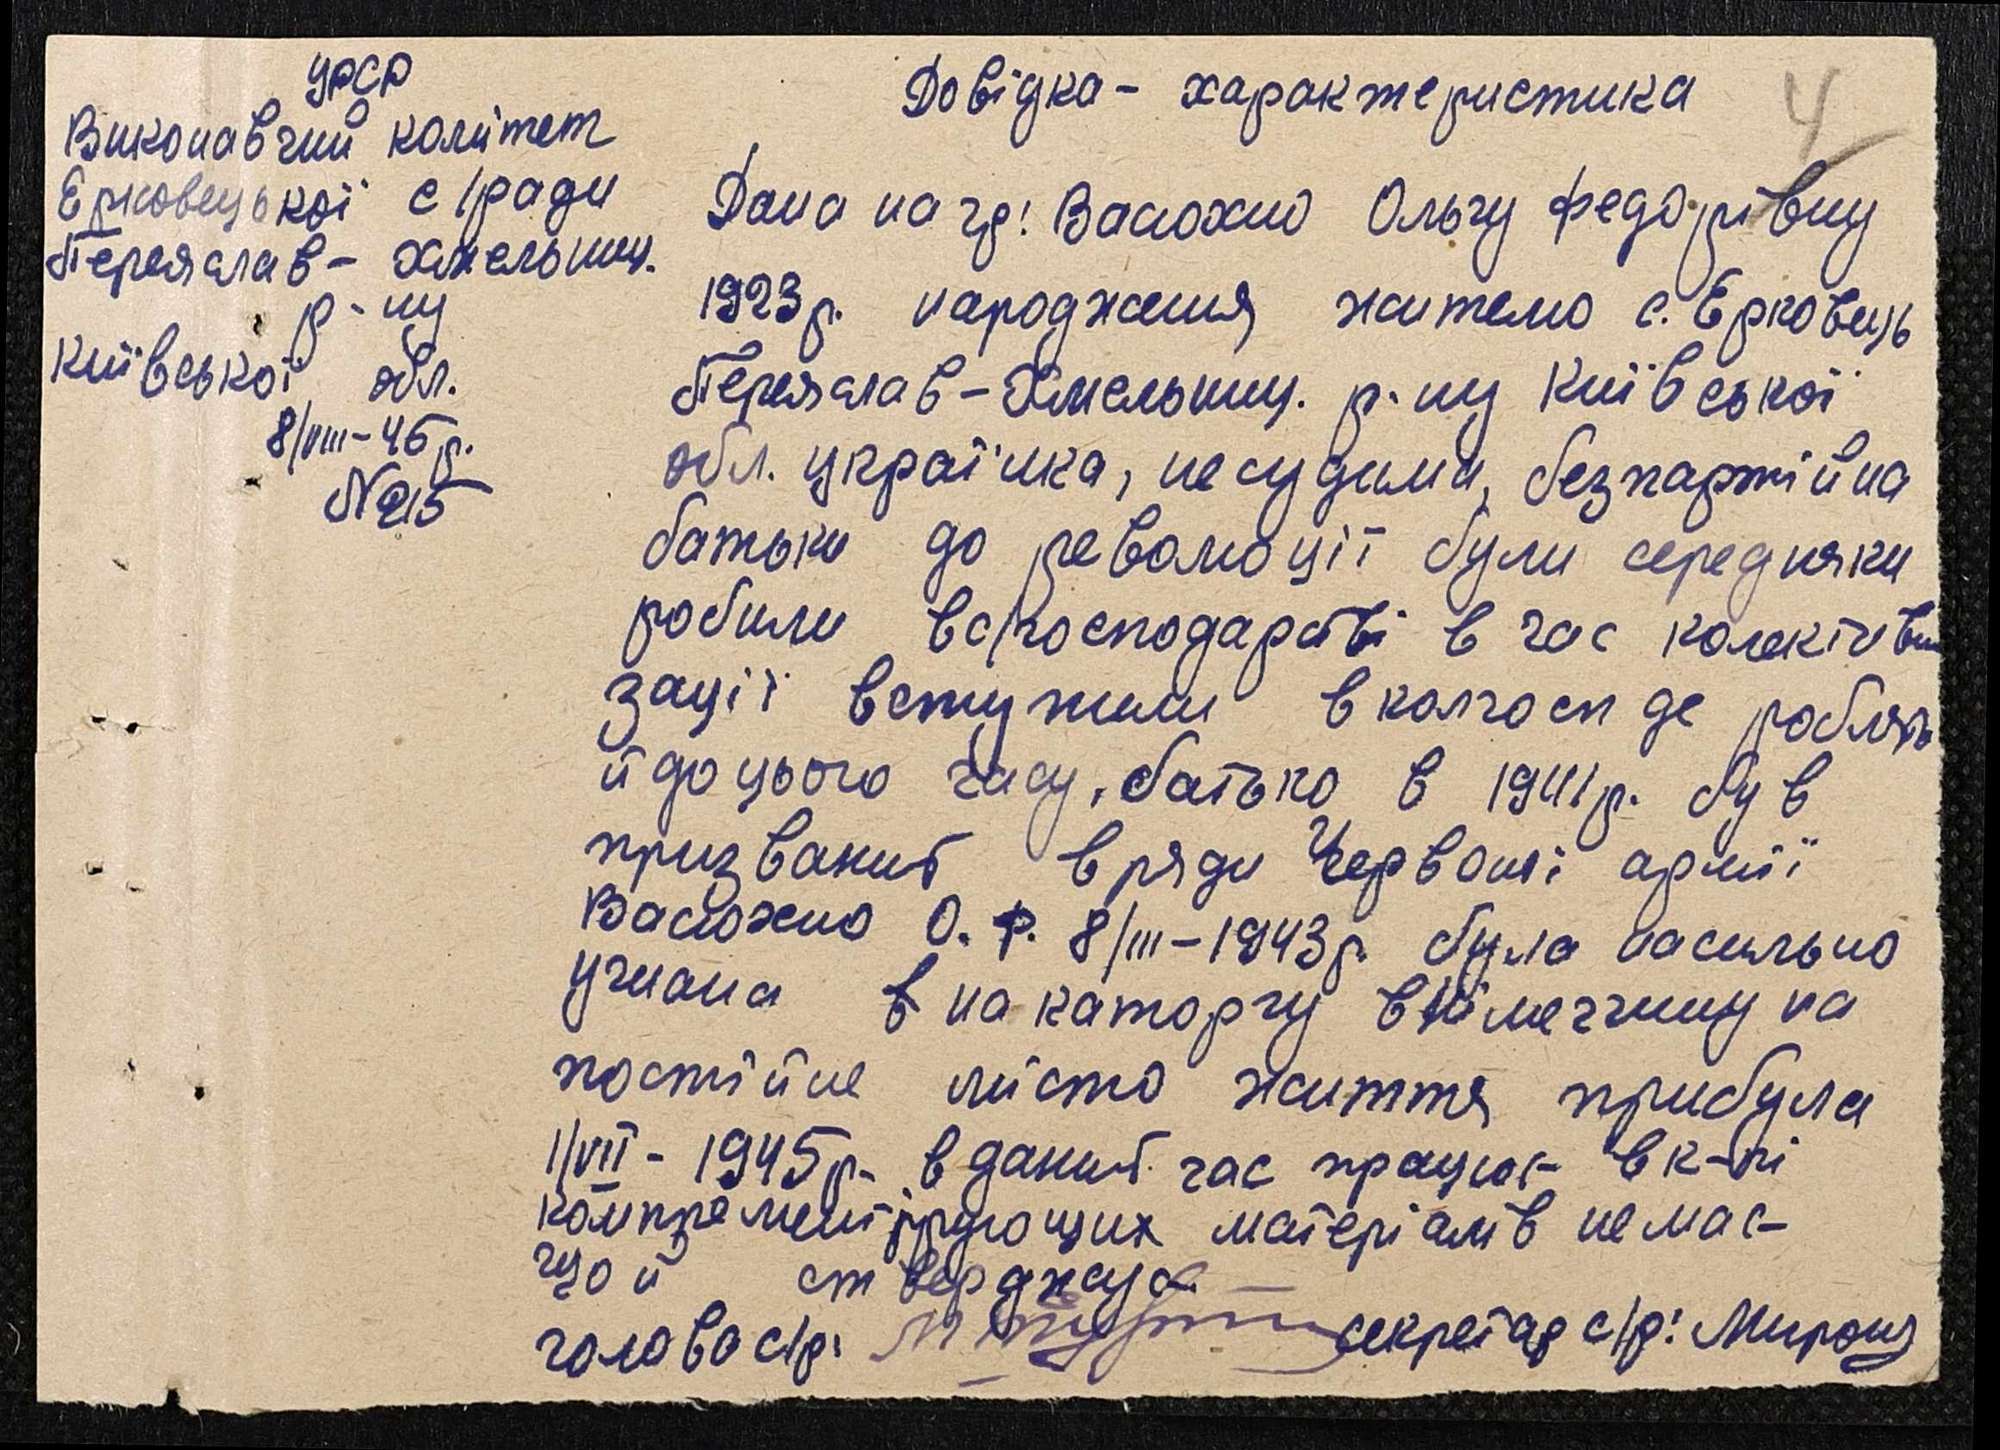 УРСР
Виконавчий комітет
Ерковецької с/ради
Переяслав-Хмельниц.
р-ну
Київської обл.
8/VIII-46р.
№215
4
Довідка - характеристика
Дана на гр: Васюхно Ольгу Федорівну
1923р. народження жителю с. Ерковець
Переяслав-Хмельниц. р-ну Київської
обл. українка, несудима, безпартійна
батьки до революції були середняки
робили в с/господарстві в час колективи
зації вступили в колгосп де роблять
й до цього часу, батько в 1941р. був
призваний в ряди Червоної армії
Васюхно О. Ф. 8/III-1943р. була насильно
угнана в на каторгу в Німеччину на
постійне місто життя прибула
1/VII-1945р. в даний час працює в к-пі
компреметірующих матеріалів немає
що й стверджує
голова с/р: секретар с/р: